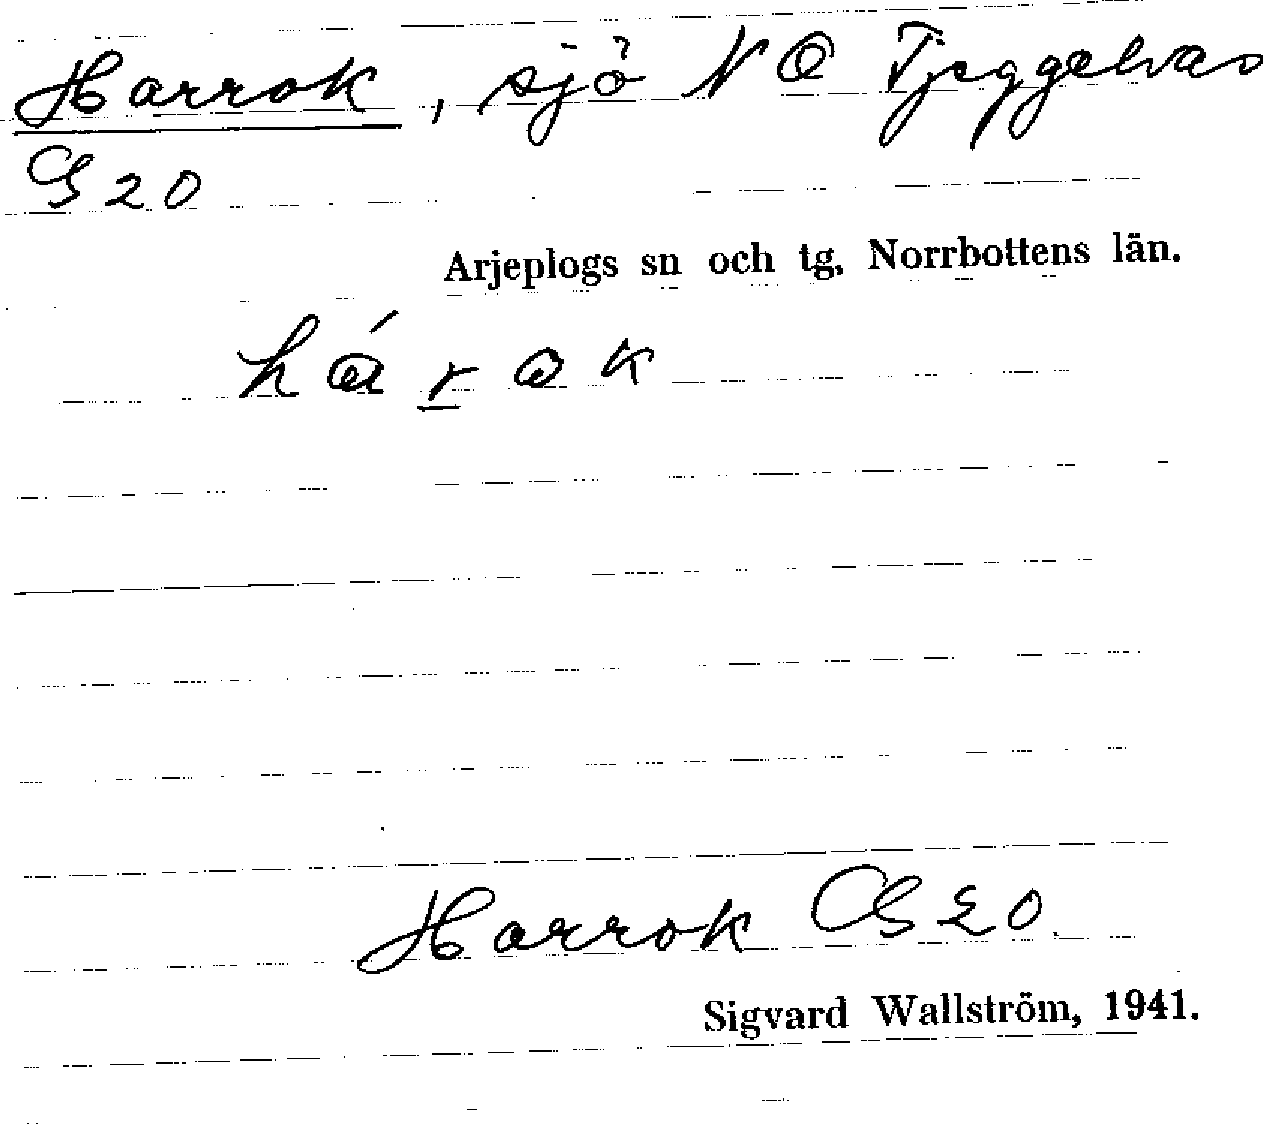 Harrok, sjö NO Tjeggelvas
G20
Arjeplogs sn och tg, Norrbottens län.
hárok
Harrok G20
Sigvard Wallström, 1941.